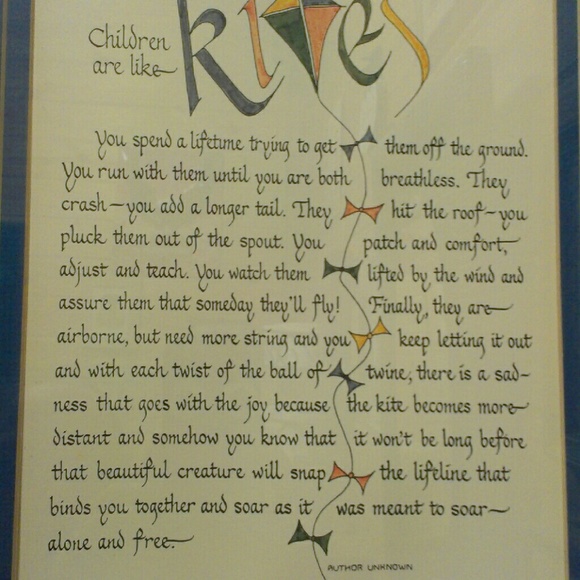 Children
are like
kites
You spend a lifetime trying to get them off the ground.
You run with them until you are both breathless. They
crash—you add a longer tail. They hit the roof—you
pluck them out of the spout. You patch and comfort,
adjust and teach. You watch them lifted by the wind and
assure them that someday they'll fly! Finally, they are
airborne, but need more string and you keep letting it out
and with each twist of the ball of twine, there is a sad-
ness that goes with the joy because the kite becomes more
distant and somehow you know that it won't be long before
that beautiful creature will snap the lifeline that
binds you together and soar as it was meant to soar—
alone and free.
AUTHOR UNKNOWN